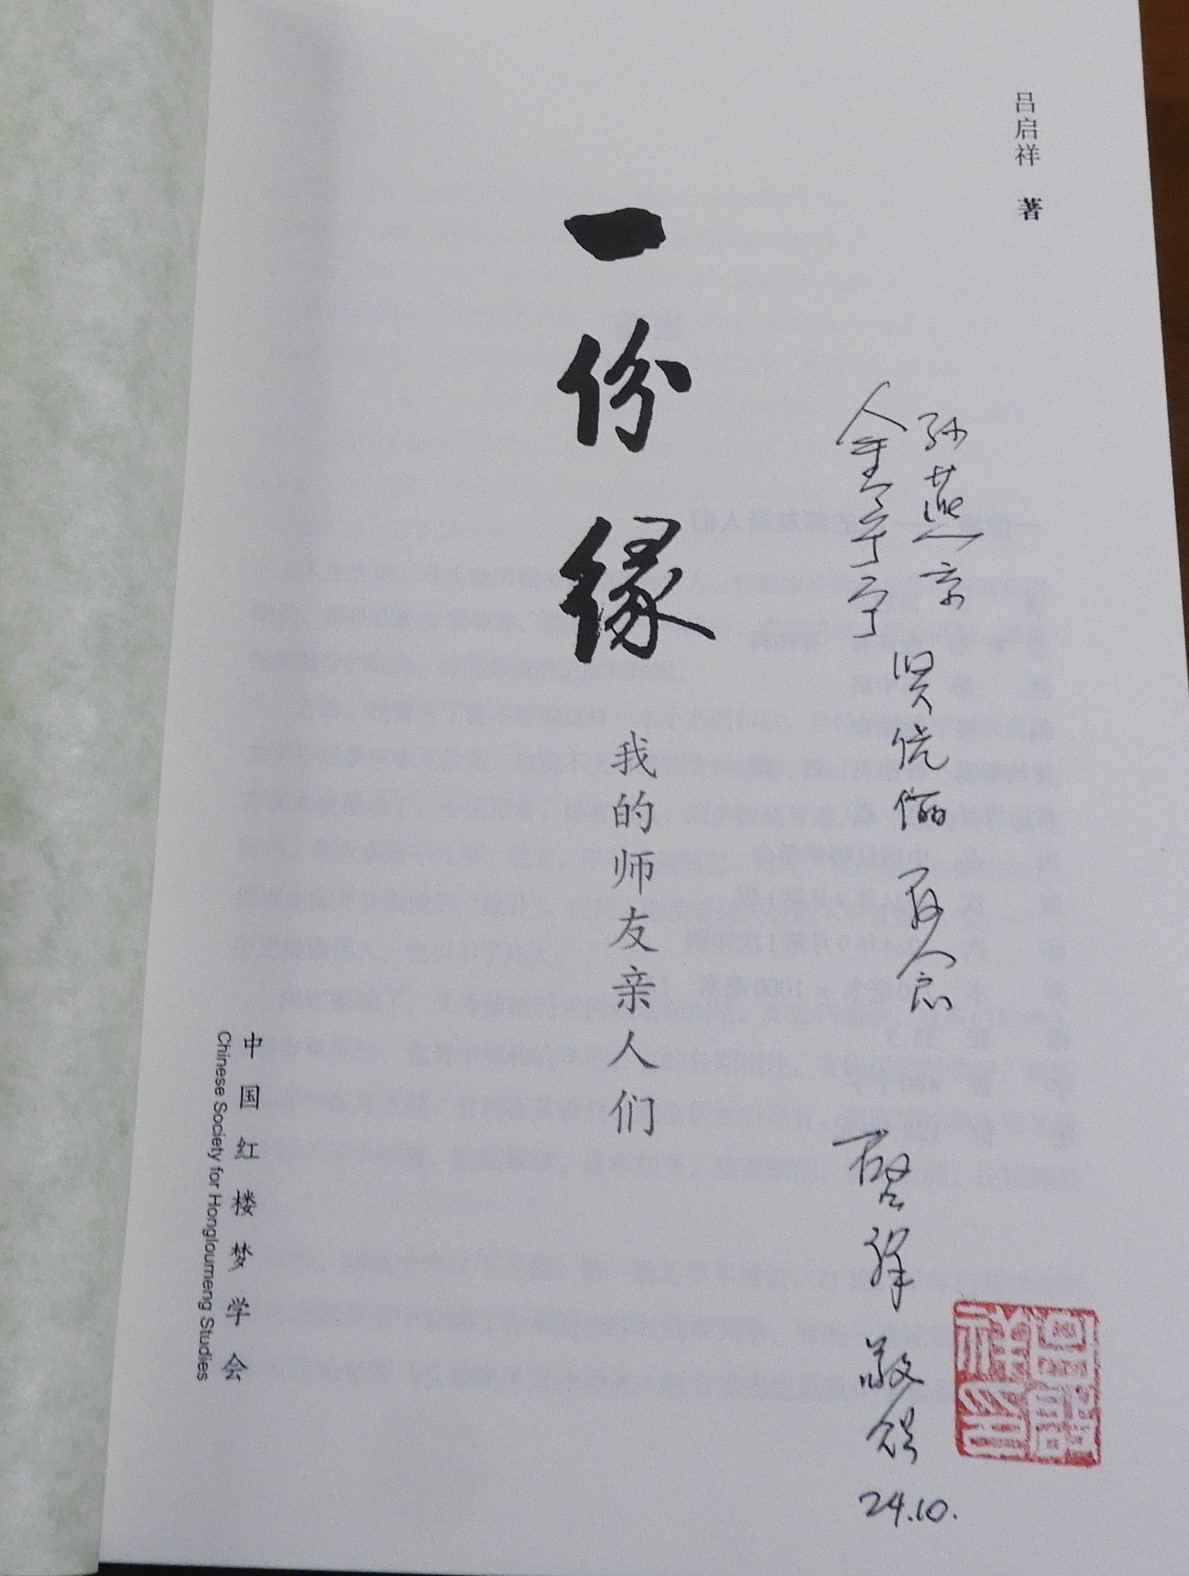 吕启祥 著
一份缘
我的师友亲人们
中国红楼梦学会
Chinese Society for Hongloumeng Studies
孙燕京
贤伉俪 存念
启祥 敬贻
24.10.
吕启祥印